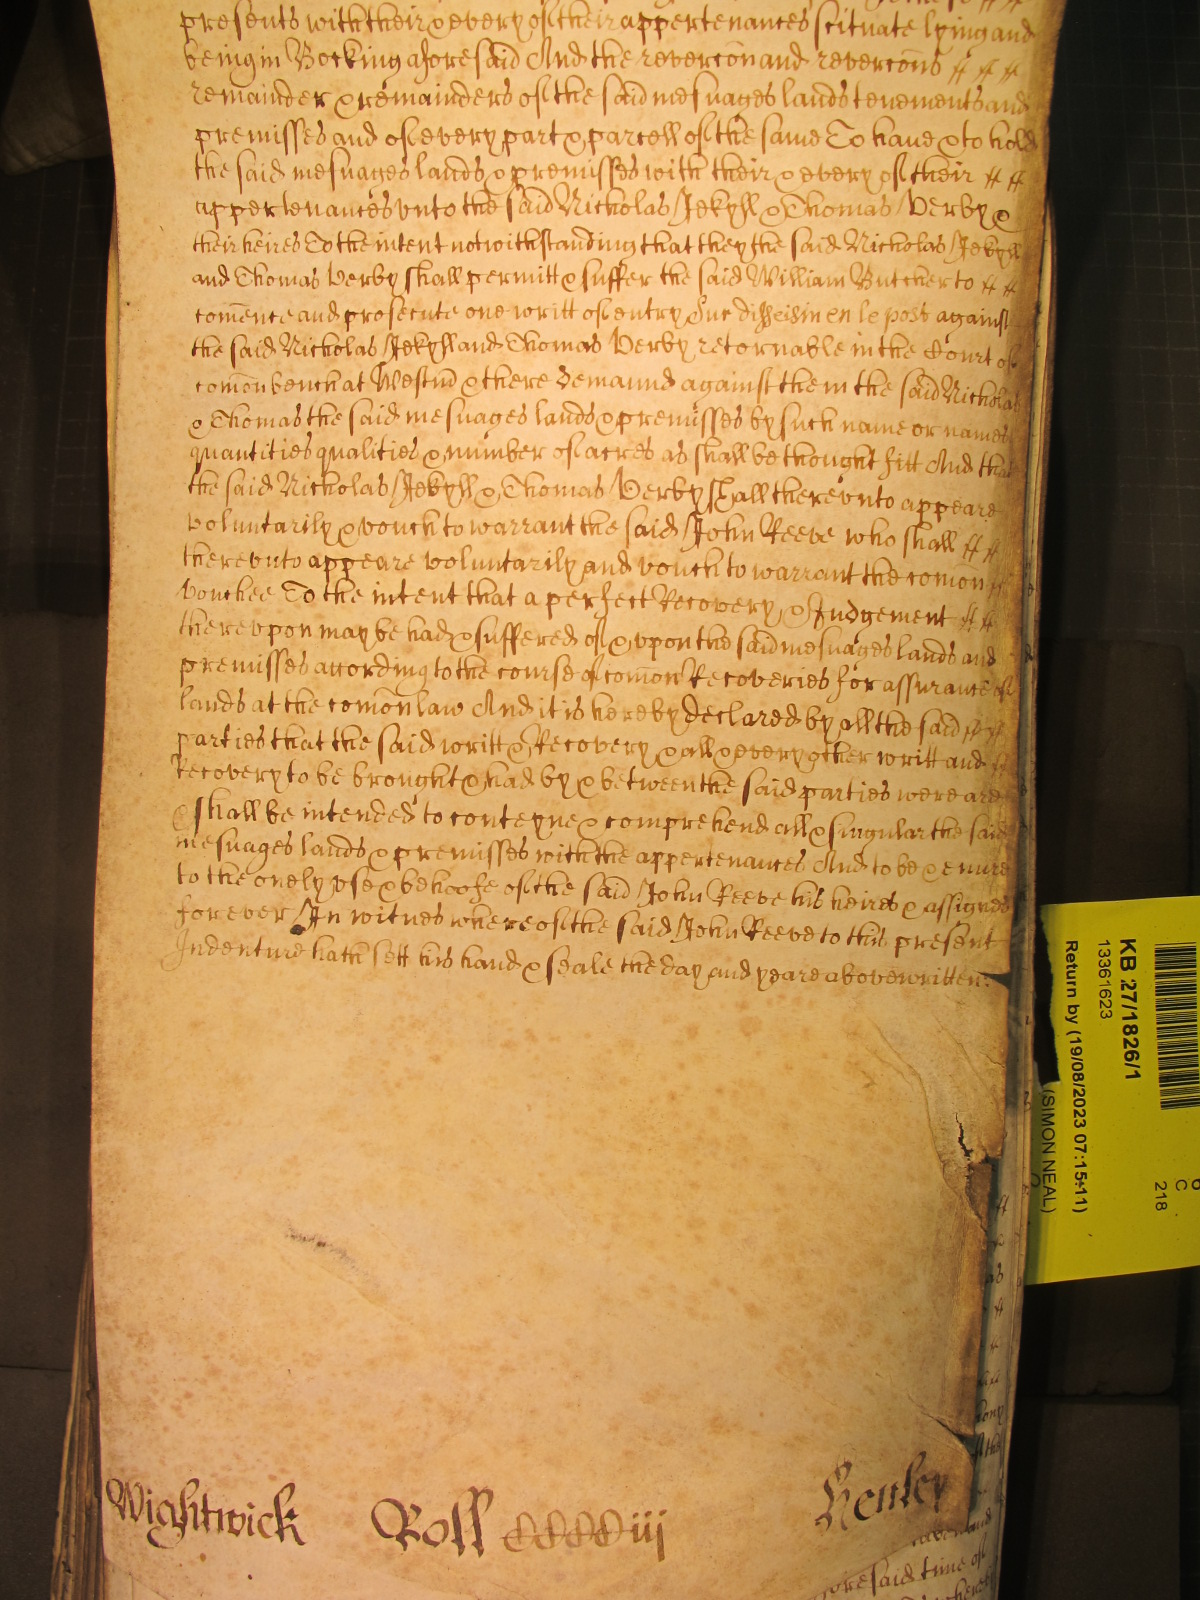 presents with their & every of their appertenances scituate lying and
being in Bocking aforesaid And the revercõn and revercõns
remainder & remainders of the said mesuages lands tenements and
premisses and of every part & parcell of the same To have & to hold
the said mesuages lands & premisses with their & every of their
appertenances vnto the said Nicholas Jekyll & Thomas Verby &
their heires To the intent notwithstanding that they the said Nicholas Jekyll
and Thomas Verby shall permitt & suffer the said William Butcher to
comẽnce and prosecute one writt of entry Sur disseisin en le post against
the said Nicholas Jekyll and Thomas Verby retornable in the Court of
comõn bench at Westm̃ & there demaund against them the said Nicholas
& Thomas the said mesuages lands & premisses by such name or names
quantities qualities & number of acres as shall be thought fitt And that
the said Nicholas Jekyll & Thomas Verby shall therevnto appeare
voluntarily & vouch to warrant the said John Reeve who shall
therevnto appeare voluntarily and vouch to warrant the comõn
vouchee To the intent that a perfect Recovery & Judgement
therevpon may be had & suffered of & vpon the said mesuages lands and
premisses according to the course of comõn Recoveries for assurance of
lands at the comõn law And it is hereby declared by all the said
parties that the said writt & Recovery & all & every other writt and
Recovery to be brought & had by & betweene the said parties were are
& shall be intended to conteyne & comprehend all & singular the said
mesuages lands & premisses with the appertenances And to be & enure
to the onely vse & behoofe of the said John Reeve his heires & assignes
forever In witnes whereof the said John Reeve to this present
Indenture hath sett his hand & seale the day and yeare abovewritten.
Wightwick Roll CCCCiij Henley
aforesaid time of
KB 27/1826/1
13361623
Return by (19/08/2023 07:15:11)
(SIMON NEAL)
C
218